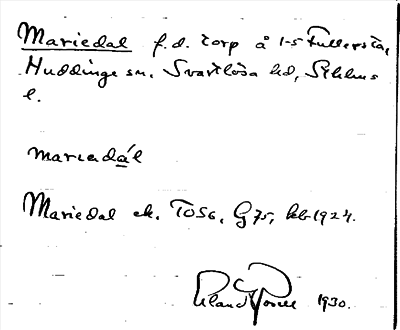 Mariedal f.d. torp å 1-5 Fullersta,
Huddinge sn, Svartlösa hd, Sthlms
l.
mariedál
Mariedal ek. T056, G75, kb 1924.
1930.